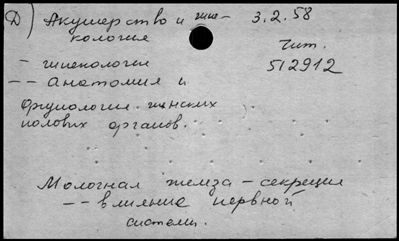 Д) Акушерство и гине- 3.2.58
кология
Чит.
- гинекология 512912
-- анатомия и
физиология женских
половых органов.
Молочная железа - секреция
-- влияние нервной
системы.